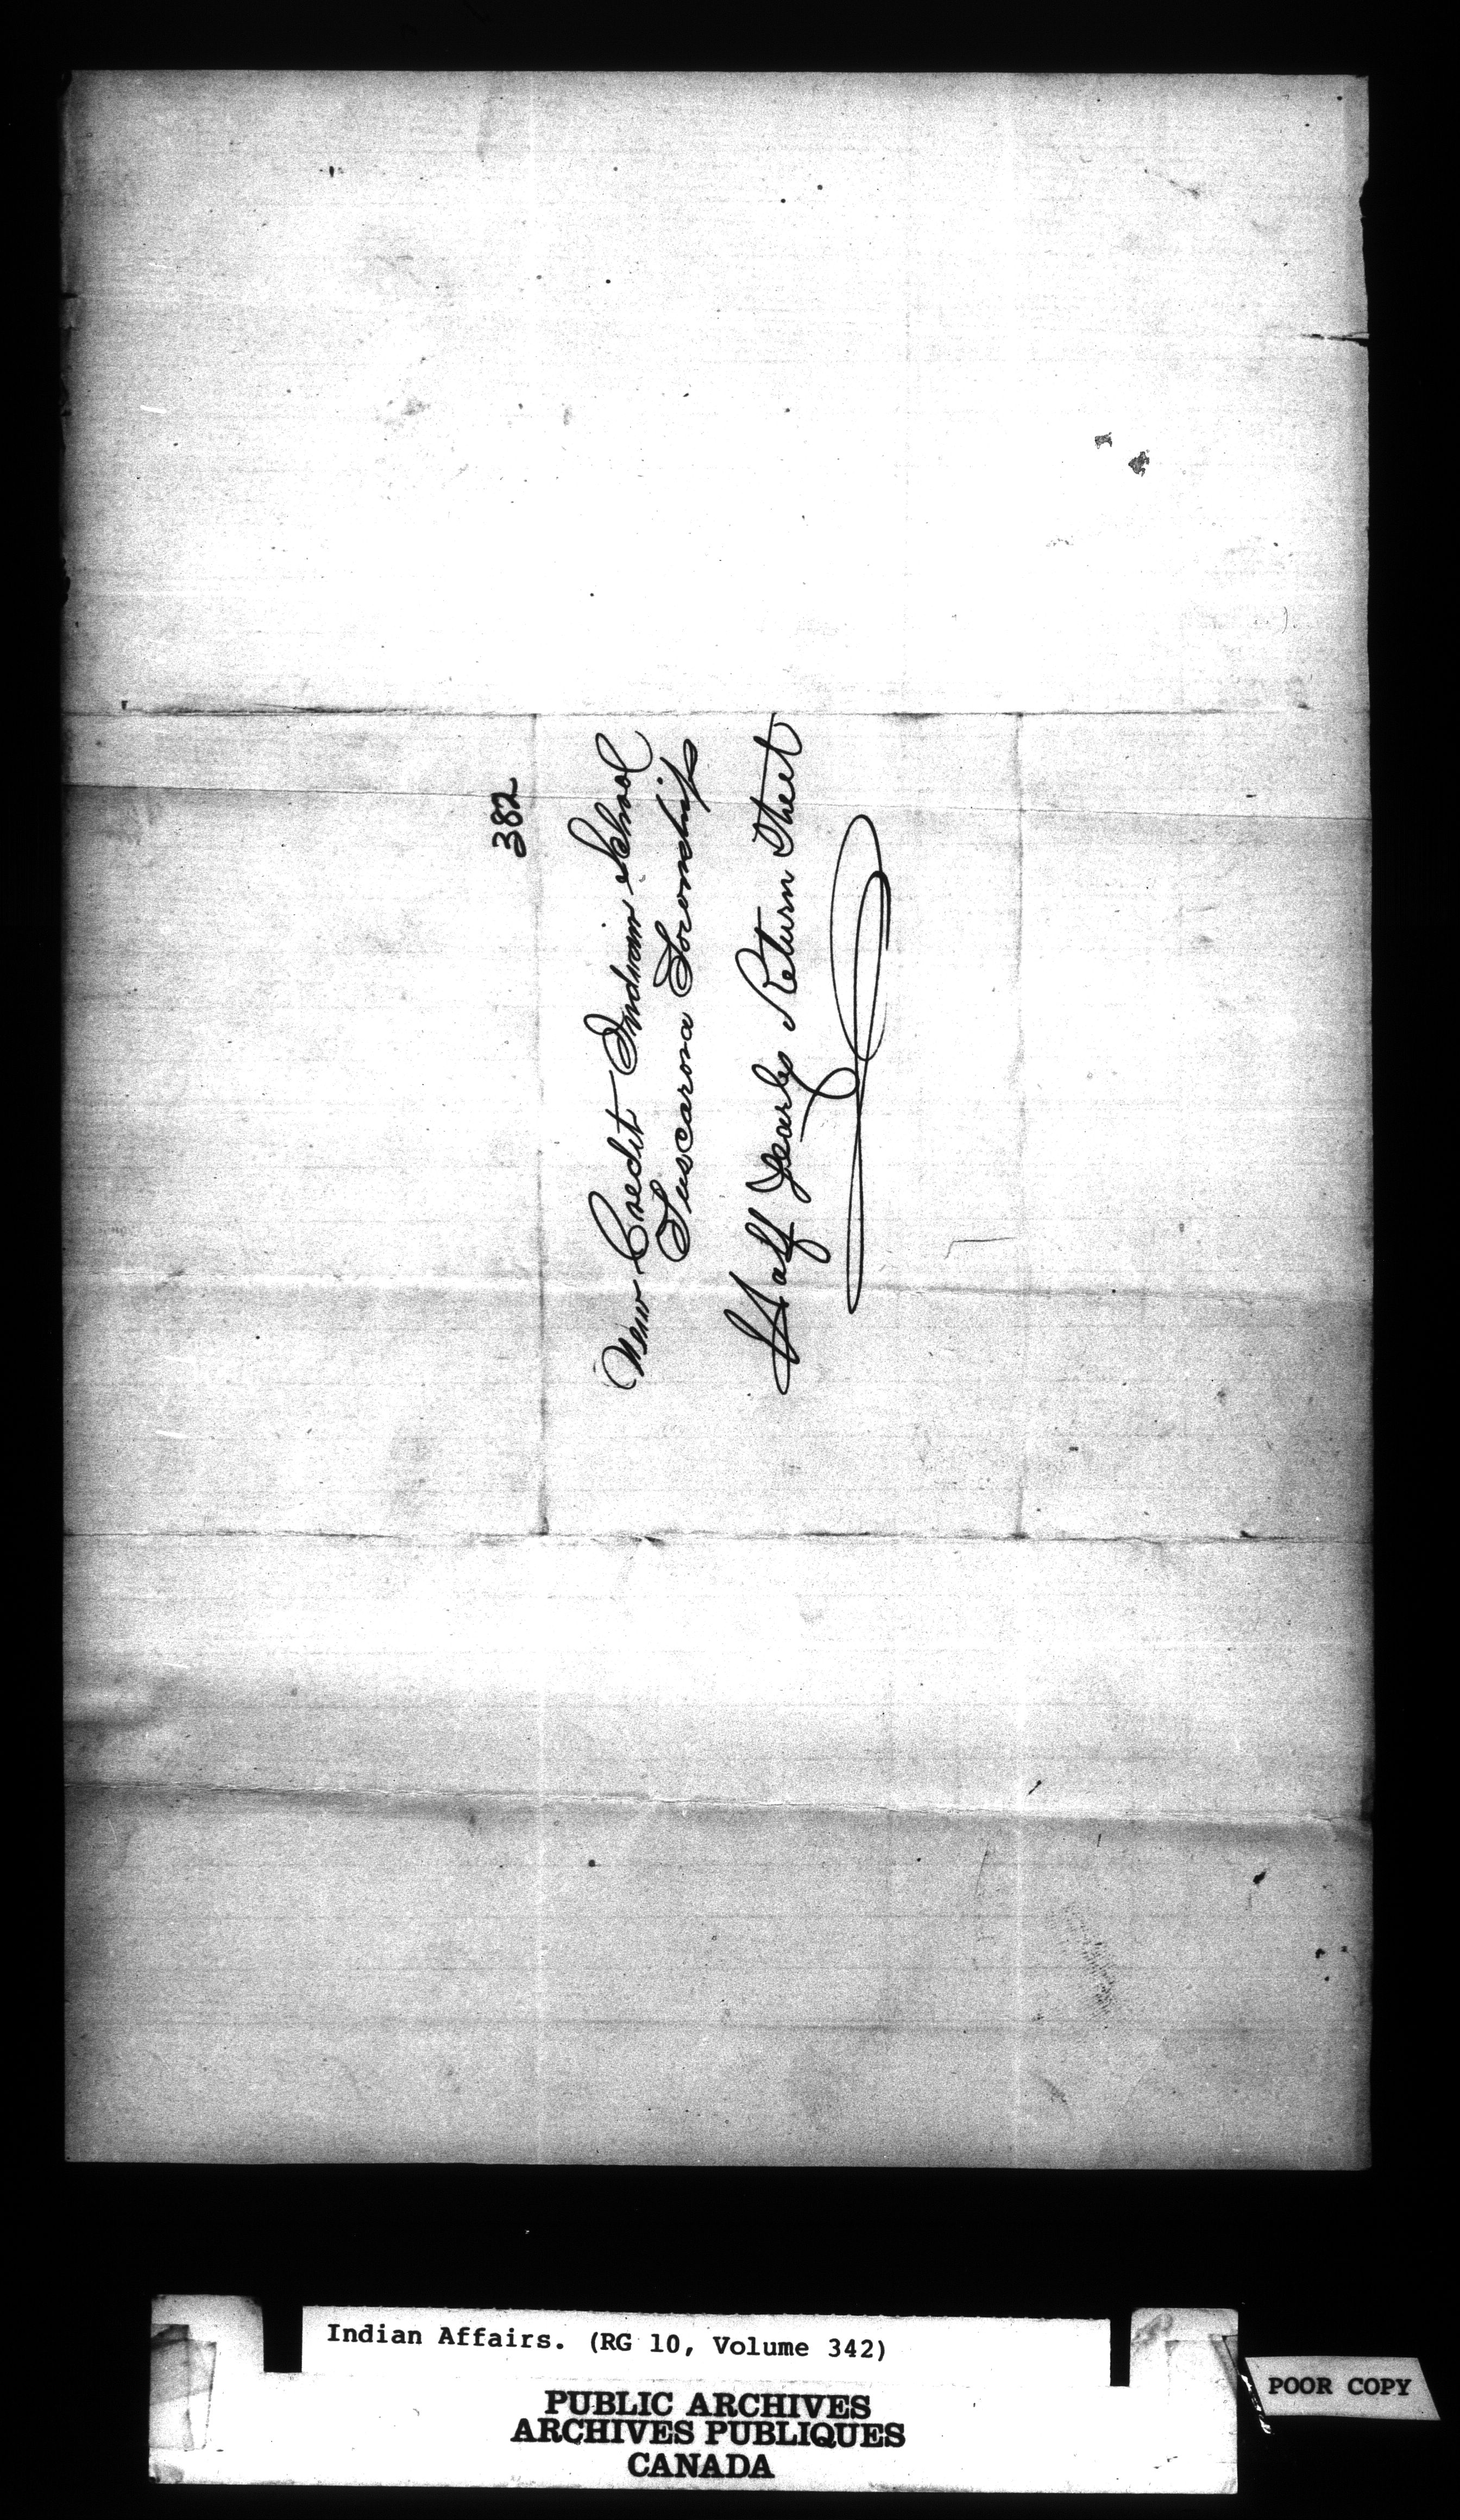 382
New Credit Indian School
Tuscarora Township
Half Yearly Return Sheet
Indian Affairs. (RG 10, Volume 342)
PUBLIC ARCHIVES
ARCHIVES PUBLIQUES
CANADA
POOR COPY